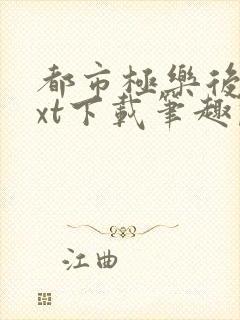 都市極樂後
xt下載筆趣
江曲